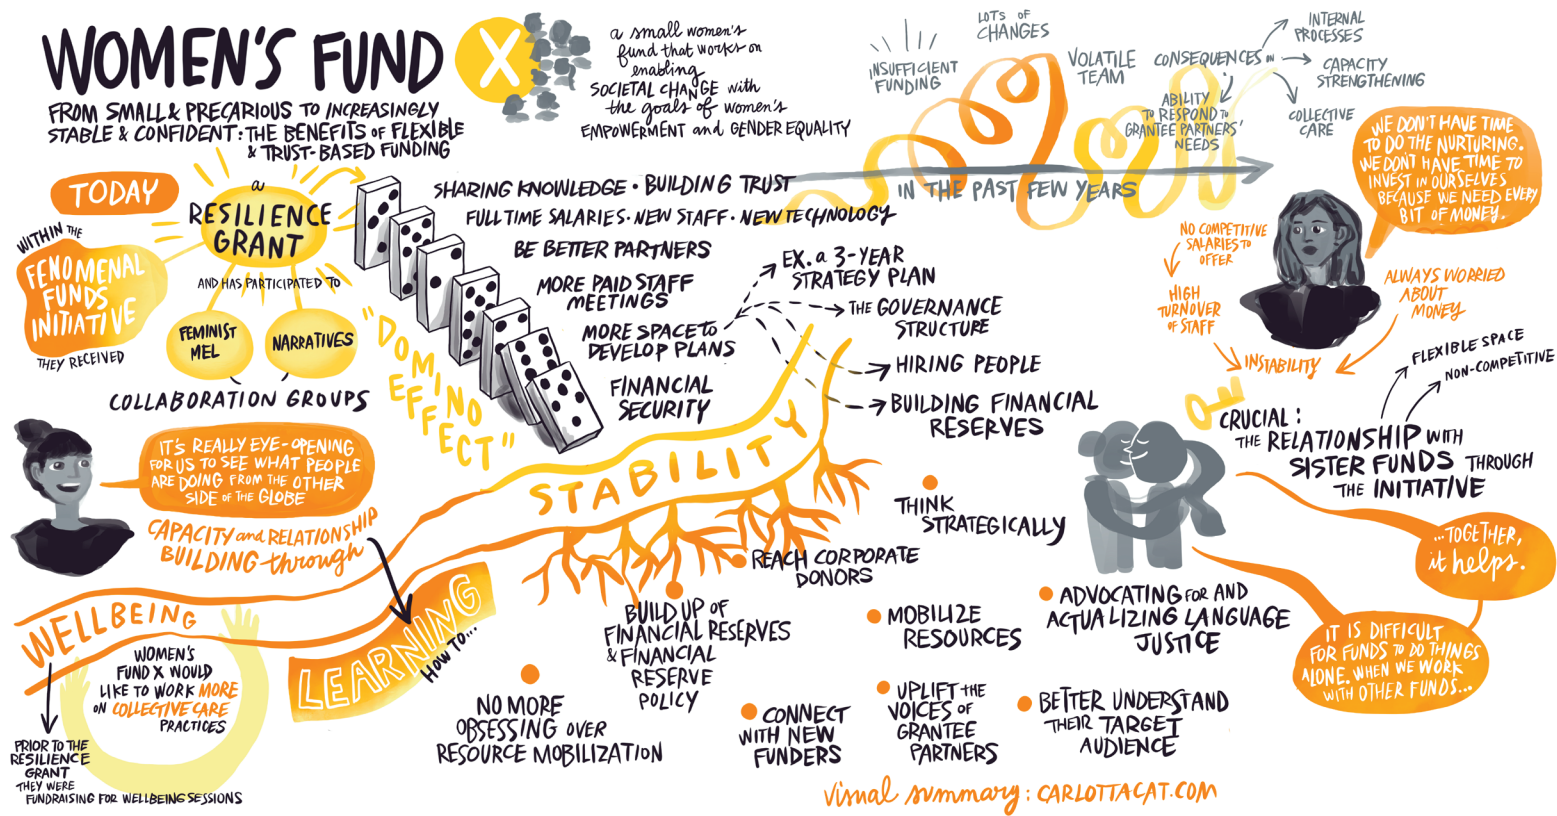 WOMEN'S FUND
X
FROM SMALL & PRECARIOUS TO INCREASINGLY
STABLE & CONFIDENT: THE BENEFITS OF FLEXIBLE
& TRUST-BASED FUNDING
a small women's
fund that works on
enabling
SOCIETAL CHANGE with
the goals of women's
EMPOWERMENT and GENDER EQUALITY
INSUFFICIENT
FUNDING
LOTS OF
CHANGES
VOLATILE
TEAM
CONSEQUENCES ON
INTERNAL
PROCESSES
CAPACITY
STRENGTHENING
COLLECTIVE
CARE
ABILITY
TO RESPOND TO
GRANTEE PARTNERS'
NEEDS
IN THE PAST FEW YEARS
WE DON'T HAVE TIME
TO DO THE NURTURING.
WE DON'T HAVE TIME TO
INVEST IN OURSELVES
BECAUSE WE NEED EVERY
BIT OF MONEY.
NO COMPETITIVE
SALARIES TO
OFFER
HIGH
TURNOVER
OF STAFF
ALWAYS WORRIED
ABOUT
MONEY
INSTABILITY
TODAY
WITHIN THE
FENOMENAL
FUNDS
INITIATIVE
THEY RECEIVED
a
RESILIENCE
GRANT
AND HAS PARTICIPATED TO
FEMINIST
MEL
NARRATIVES
COLLABORATION GROUPS
"DOMINO
EFFECT"
SHARING KNOWLEDGE • BUILDING TRUST
FULL TIME SALARIES • NEW STAFF • NEW TECHNOLOGY
BE BETTER PARTNERS
MORE PAID STAFF
MEETINGS
MORE SPACE TO
DEVELOP PLANS
FINANCIAL
SECURITY
EX. a 3-YEAR
STRATEGY PLAN
THE GOVERNANCE
STRUCTURE
HIRING PEOPLE
BUILDING FINANCIAL
RESERVES
FLEXIBLE SPACE
NON-COMPETITIVE
CRUCIAL:
THE RELATIONSHIP WITH
SISTER FUNDS THROUGH
THE INITIATIVE
...TOGETHER,
it helps.
IT IS DIFFICULT
FOR FUNDS TO DO THINGS
ALONE. WHEN WE WORK
WITH OTHER FUNDS...
IT'S REALLY EYE-OPENING
FOR US TO SEE WHAT PEOPLE
ARE DOING FROM THE OTHER
SIDE OF THE GLOBE
CAPACITY and RELATIONSHIP
BUILDING through
STABILITY
WELLBEING
WOMEN'S
FUND X WOULD
LIKE TO WORK MORE
ON COLLECTIVE CARE
PRACTICES
PRIOR TO THE
RESILIENCE
GRANT
THEY WERE
FUNDRAISING FOR WELLBEING SESSIONS
LEARNING
HOW TO...
NO MORE
OBSESSING OVER
RESOURCE MOBILIZATION
BUILD UP OF
FINANCIAL RESERVES
& FINANCIAL
RESERVE
POLICY
REACH CORPORATE
DONORS
THINK
STRATEGICALLY
MOBILIZE
RESOURCES
CONNECT
WITH NEW
FUNDERS
UPLIFT THE
VOICES OF
GRANTEE
PARTNERS
ADVOCATING FOR AND
ACTUALIZING LANGUAGE
JUSTICE
BETTER UNDERSTAND
THEIR TARGET
AUDIENCE
visual summary: CARLOTTACAT.COM